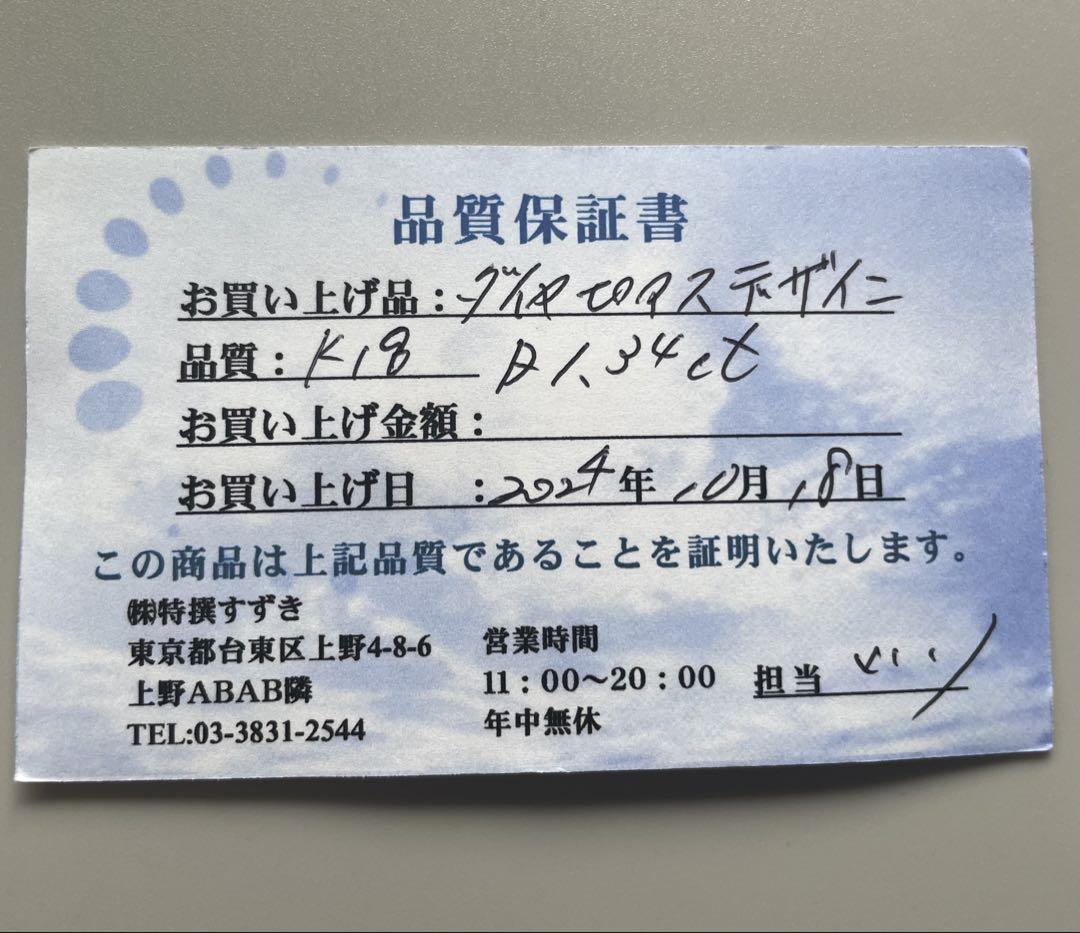 品質保証書
お買い上げ品：ダイヤ デザイン
品質：K18 D1.34ct
お買い上げ金額：
お買い上げ日 ：2024年10月18日
この商品は上記品質であることを証明いたします。
㈱特撰すずき
東京都台東区上野4-8-6
上野ABAB隣
TEL:03-3831-2544
営業時間
11：00〜20：00
年中無休
担当